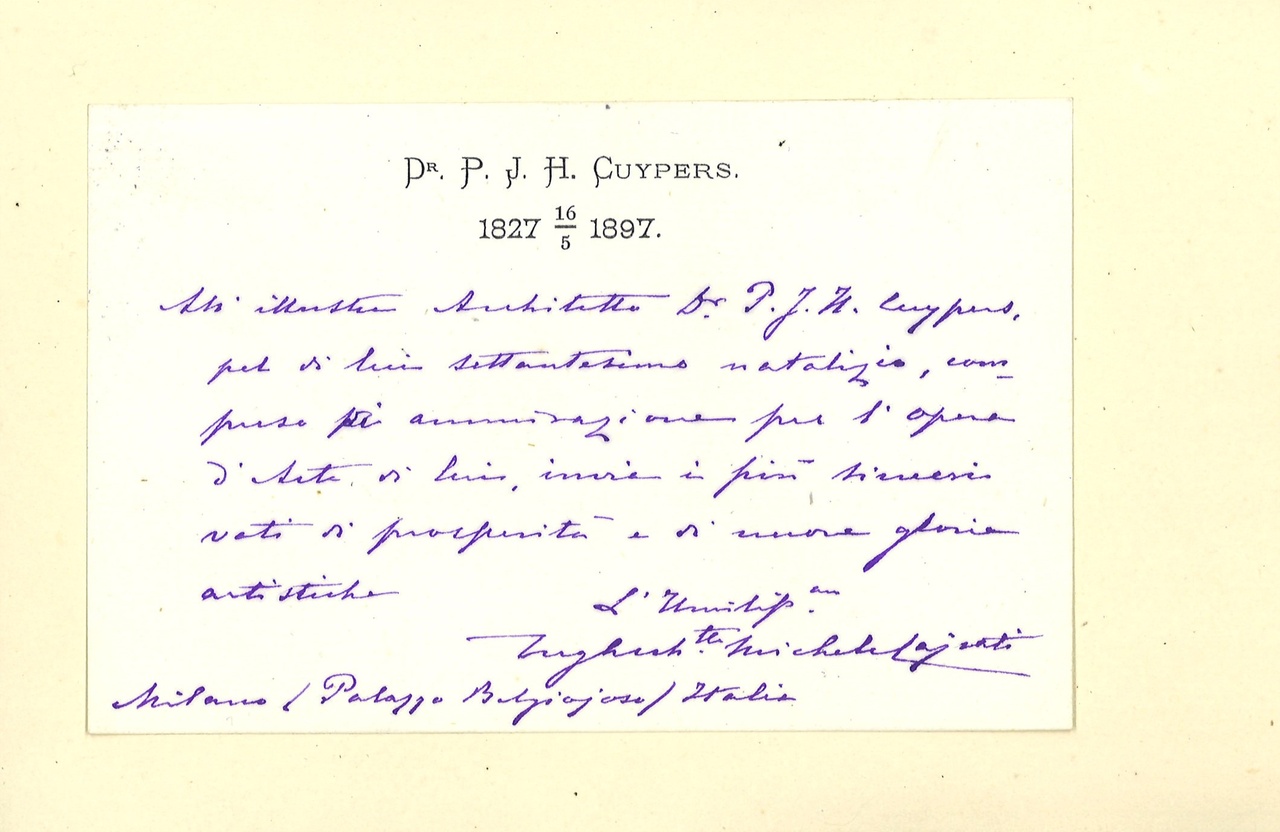 Dr. P. J. H. Cuypers.
1827 16/5 1897.
All' illustre Architetto Dr. P. J. H. Cuypers,
pel di lui settantesimo natalizio, com-
preso di ammirazione per l'opera
d'Arte di lui, invia i più sinceri
voti di prosperità e di nuove glorie
artistiche
L'Umiliss.
Michele
Milano (Palazzo Belgiojoso) Italia